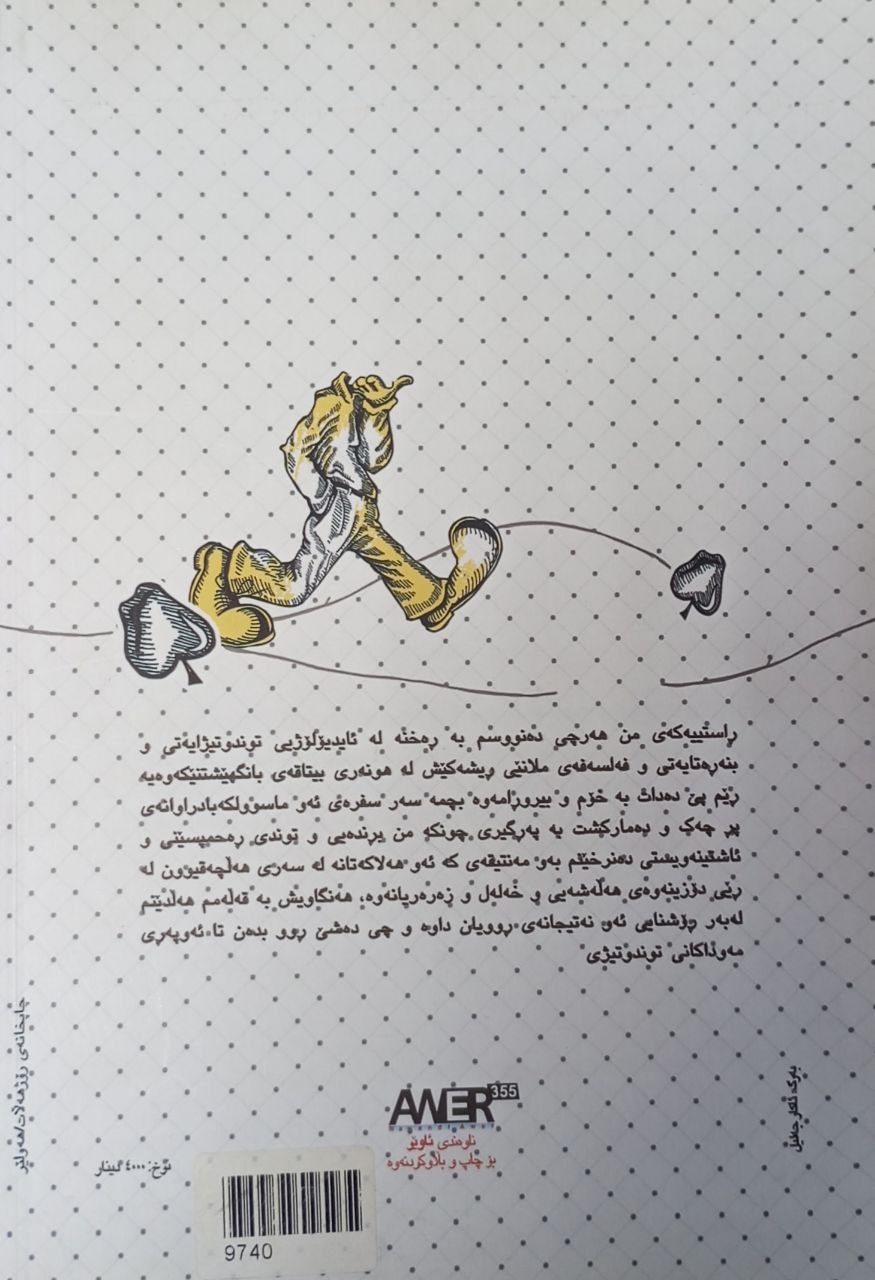 ڕاستییەکەی من هەرچی دەنووسم بە ڕەخنە لە ئایدیۆلۆژیی توندوتیژایەتی و
بنەڕەتایەتی و فەلسەفەی ملانێی ڕیشەکێش لە هونەری بیتاقەی بانگهێشتنێکەوەیە
ڕێم پێ دەدات بە خزم و بیروڕامەوە بچمە سەر سفرەی ئەو ماسوولکەبادراوانەی
پڕ چەک و دەمارگیری چونکە من بڕندەیی و توندی ڕەحمپسێنی و
ئاشقینەویستی دەنرخێنم بەو مەنتیقەی کە ئەو هەلاکەتانە لە سەری هەڵچەقیوون لە
ڕێی دۆزینەوەی هەڵەشەیی و خەلەل و زەرەریانەوە، هەنگاویش بە قەڵەمم هەڵدێنم
لەبەر ڕۆشنایی ئەو نەتیجانەی ڕوویان داوە و چی دەشێ ڕوو بدەن تا ئەوپەڕی
مەوداکانی توندوتیژی
چاپخانەی ڕۆژهەڵات/هەولێر
بەرگ: ئاکار جەلیل
AWER 355
ناوەندی ئاوێر
بۆ چاپ و بڵاوکردنەوە
نرخ: ٤٠٠٠ دینار
9740